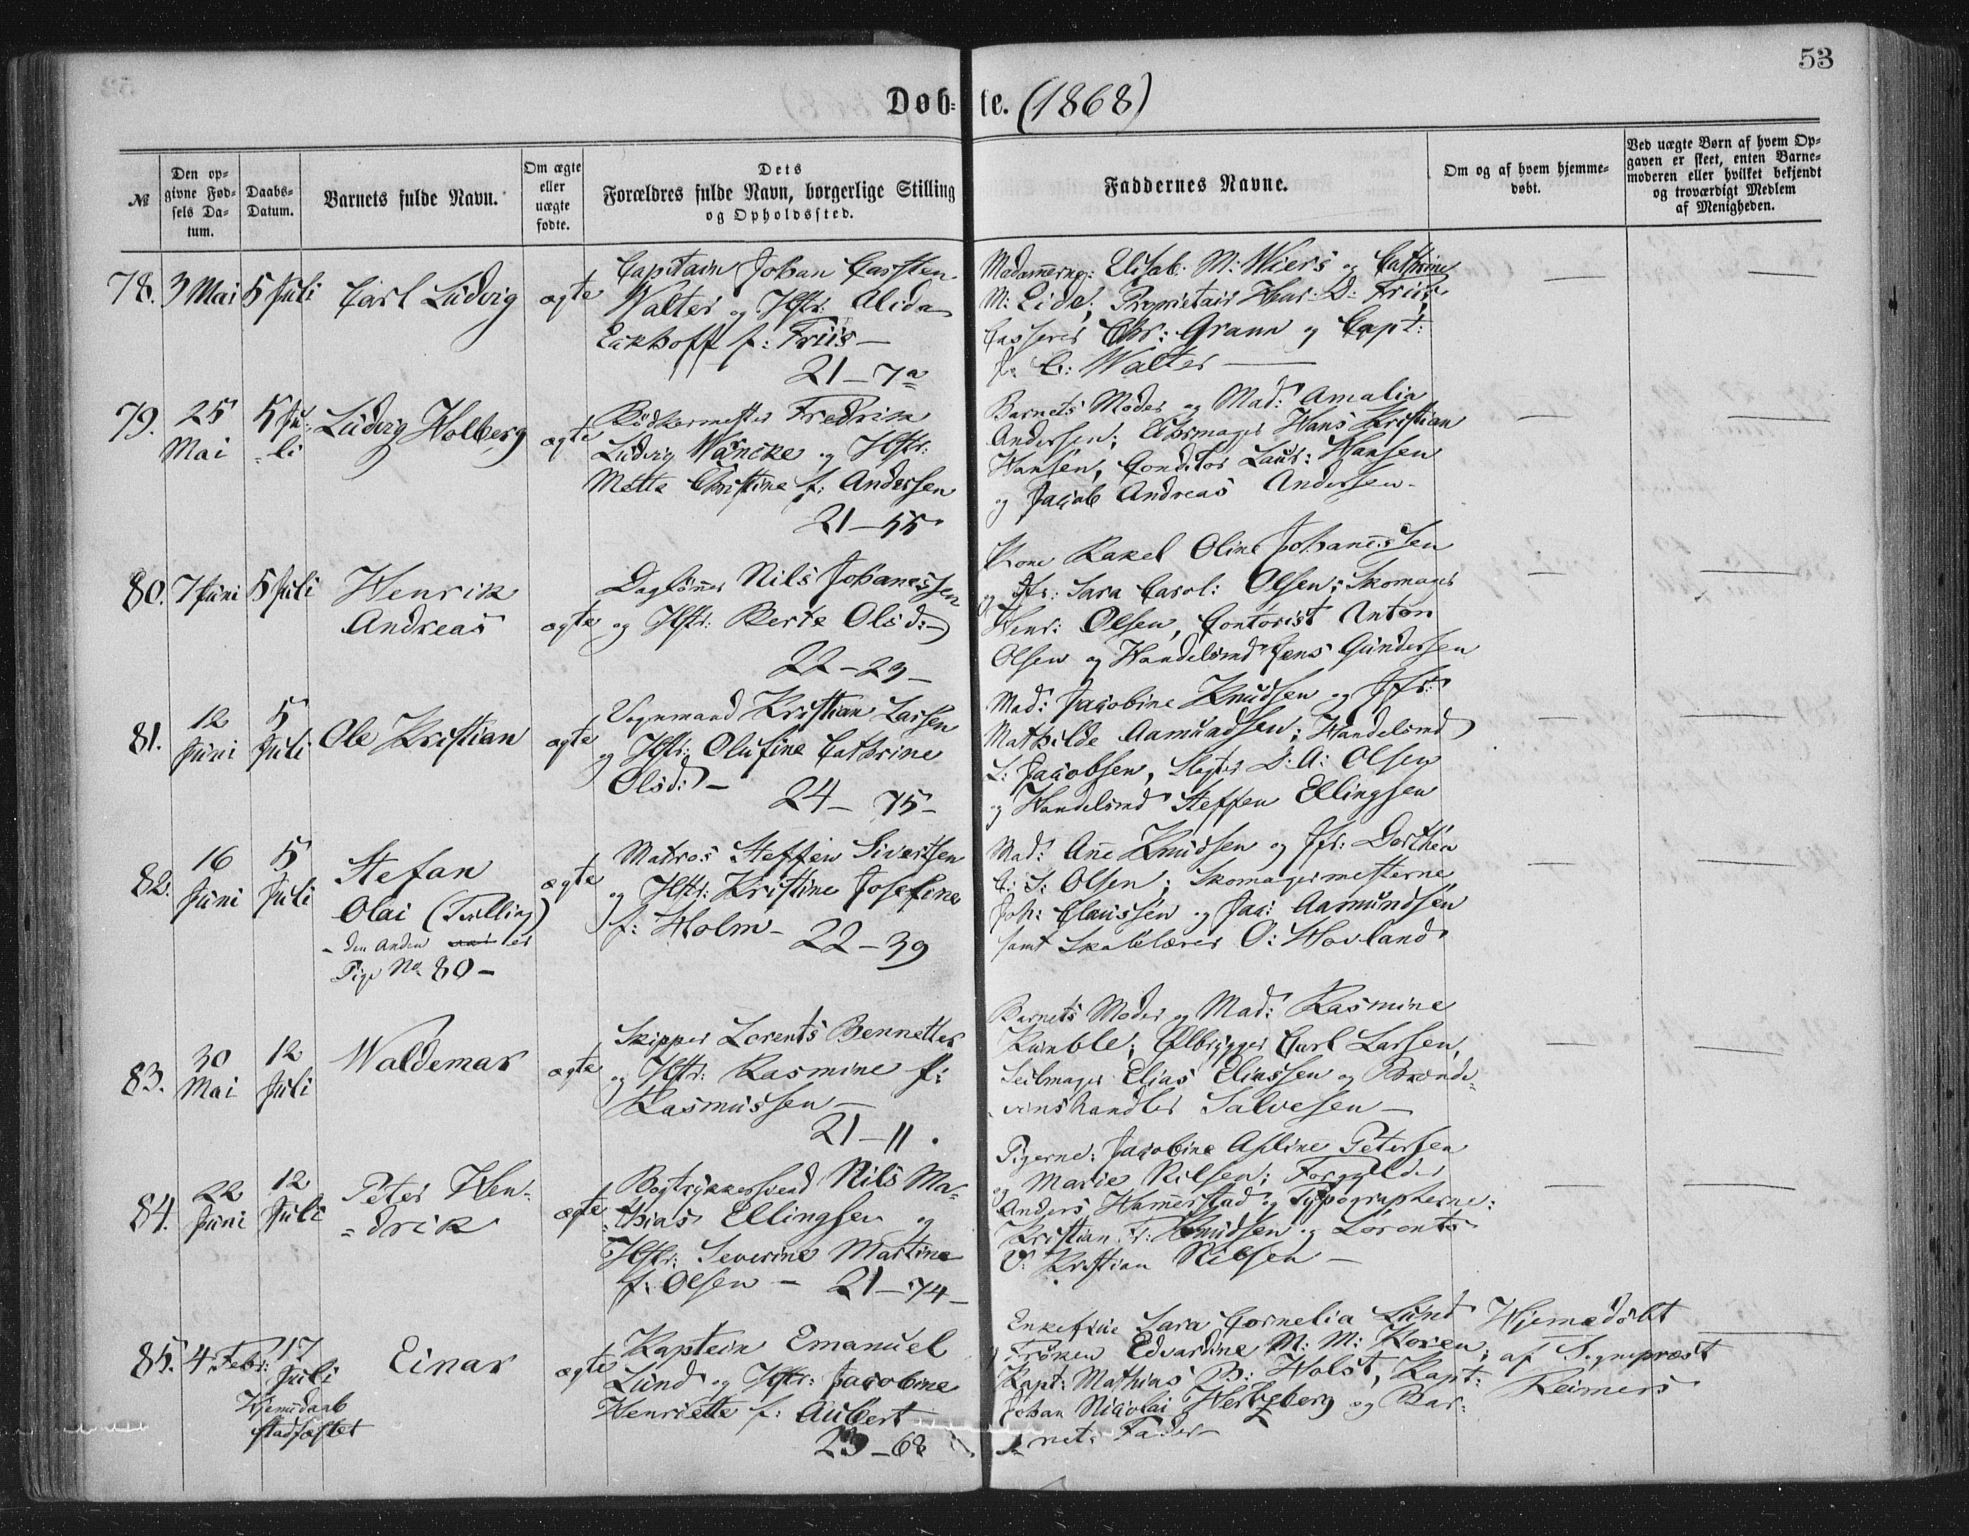 53
Døb-te. (1868)
№
Den opgivne Fødsels Datum.
Daabs-Datum.
Barnets fulde Navn.
Om ægte eller uægte fødte.
Dets Forældres fulde Navn, borgerlige Stilling og Opholdssted.
Faddernes Navne.
Om og af hvem hjemmedøbt.
Ved uægte Børn af hvem Opgaven er skeet, enten Barnemoderen eller hvilket bekjendt og troværdigt Medlem af Menigheden.
78. 3 Mai 5 Juli Carl Ludvig ægte
Capitain Johan Carsten
Walter og Hstr: Alida
Eckhoff f: Friis —
21 — 7a
Madamerne: Elisab. M: Wiers og Cathrine
M: Eide; Proprietair Har: D: Friis,
Casserer Chr: Grann og Capt:
J. C: Walter —
79. 25 Mai 5 Juli Ludvig Holberg ægte
Bødkermester Fredrik
Ludvig Wäncke og Hstr:
Mette Christine f: Andersen
21 — 55
Barnets Moder og Mad: Amalia
Andersen; Uhrmager Hans Kristian
Hansen, Conditor Laur: Hansen
og Jacob Andreas Andersen —
80. 7 Juni 5 Juli Henrik
Andreas ægte
Dagløner Nils Johanessen
og Hstr: Berte Olsd: —
22 — 29 —
Kone Rakel Oline Johanessen
og Jfr: Sara Carol: Olsen; Skomager
Henr: Olsen, Contorist Anton
Olsen og Handelsmd Jens Gundersen
81. 12 Juni 5 Juli Ole Kristian ægte
Vognmand Kristian Larsen
og Hstr: Olufine Cathrine
Olsd: —
24 — 75 —
Mad: Jacobine Knudsen og Jfr:
Mathilde Aamundsen; Handelsmd
L: Jacobsen, Slagter D: A: Olsen
og Handelsmd Steffen Ellingsen
82. 16 Juni 5 Juli Stefan
Olai (Tvilling)
— den Anden er
Pige No 80 —
ægte
Matros Steffen Sivertsen
og Hstr: Kristine Josefine
f: Holm —
22 — 39
Mad: Ane Knudsen og Jfr: Dorthea
C: S: Olsen; Skomagermesterne
Joh: Claussen og Jac: Aamundsen
samt Skolelærer O: Hovland
83. 30 Mai 12 Juli Waldemar ægte
Skipper Lorents Bennetter
og Hstr: Rasmine f:
Rasmussen —
21 — 11.
Barnets Moder og Mad: Rasmine
Kumble; Ølbrygger Carl Larsen,
Seilmager Elias Eliassen og Brænde-
vinshandler Salvesen —
84. 22 Juni 12 Juli Peter Hen-
drik ægte
Bogtrykkersvend Nils Ma-
thias Ellingsen og
Hstr: Severine Martine
f: Olsen — 21 — 74 —
Pigerne: Jacobine Asline Petersen
og Marie Nilsen; Forgylder
Anders Hamerstad og Typographerne:
Kristian Fr: Knudsen og Lorents
O: Kristian Nilsen —
85. 4 Febr: 17 Juli
Hjemedaab
stadfæstet
Einar ægte
Kaptein Emanuel
Lund og Hstr: Jacobine
Henriette f: Aubert
23 — 68
Enkefrue Sara Cornelia Lund
Frøken Edvardine M: M: Koren;
Kapt: Mathias B: Holst, Kapt:
Johan Nicolai Hertzberg og Bar-
nets Fader —
Hjemedøbt
af Sogneprest
Reimers